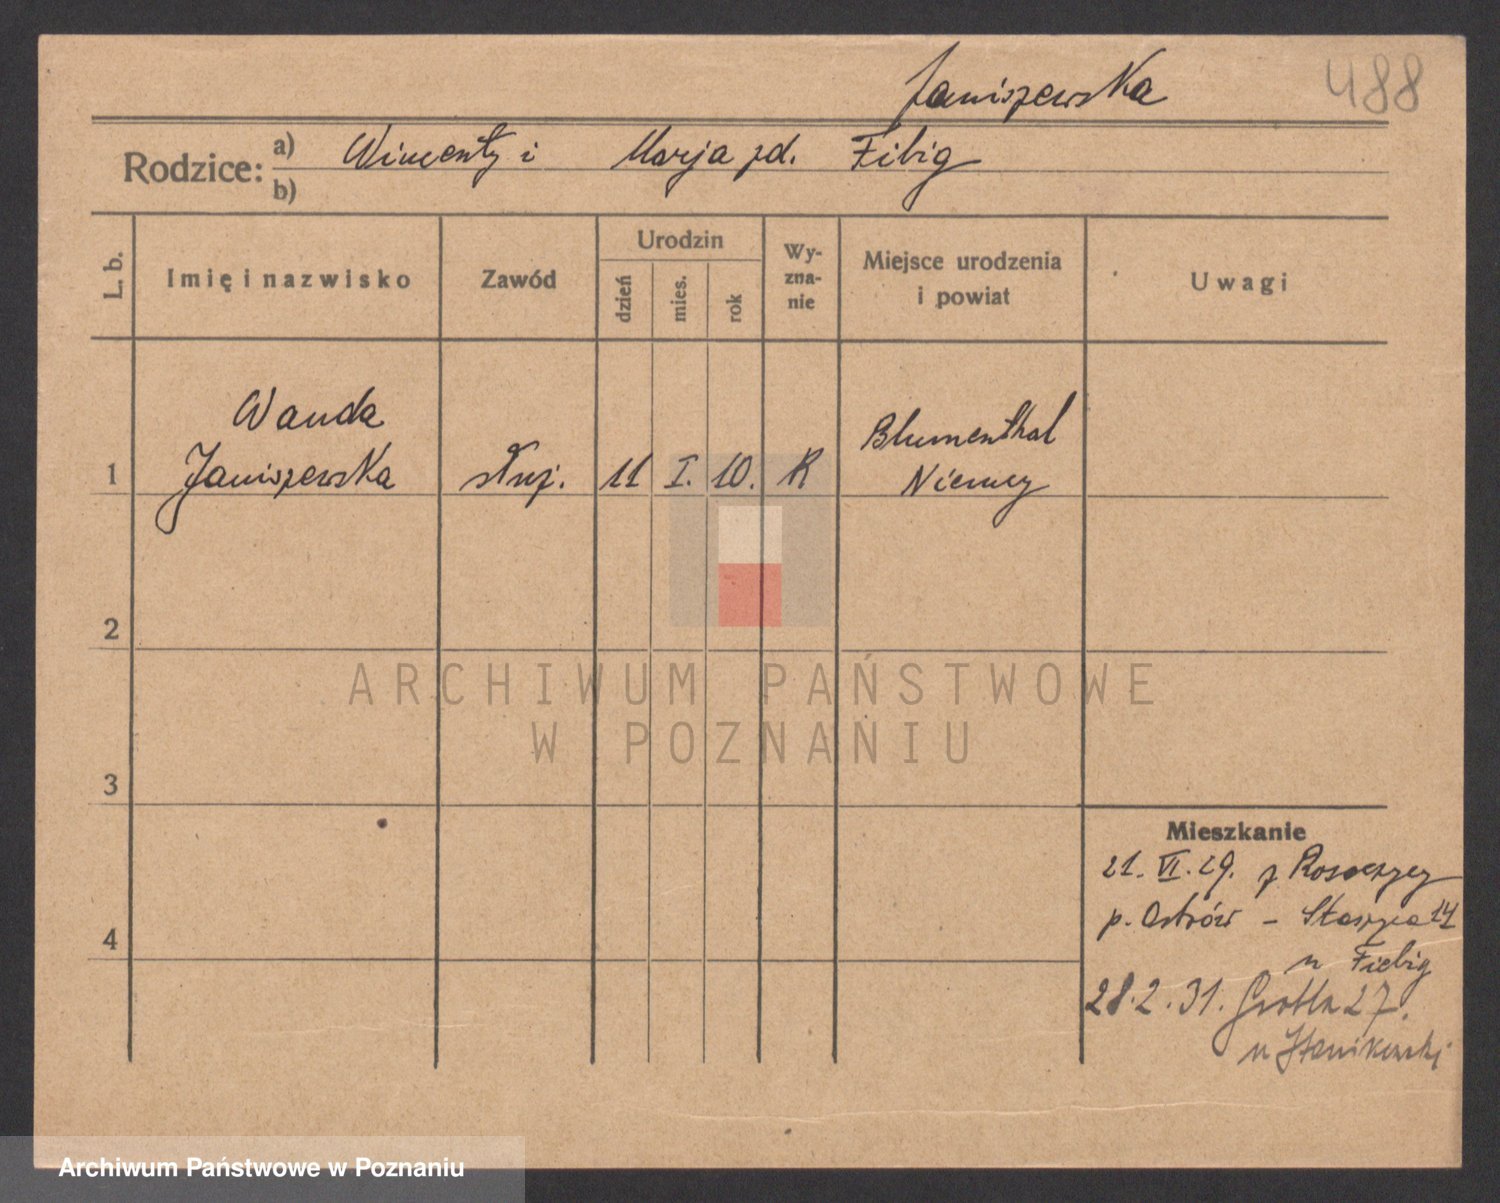 Janiszewska
488
Rodzice: a) Wincenty i Marja zd. Fibig
b)
L. b.
Imię i nazwisko
Zawód
Urodzin
dzień
mies.
rok
Wy-
zna-
nie
Miejsce urodzenia
i powiat
Uwagi
Wanda
1 Janiszewska służ. 11 I. 10. R
Blumenthal
Niemcy
2
3
4
ARCHIWUM PAŃSTWOWE
W POZNANIU
Mieszkanie
21. VI. 29. z Rososzycy
p. Ostrów - Staszyca 14
u Fiebig
28.2.31. 27.
u
Archiwum Państwowe w Poznaniu